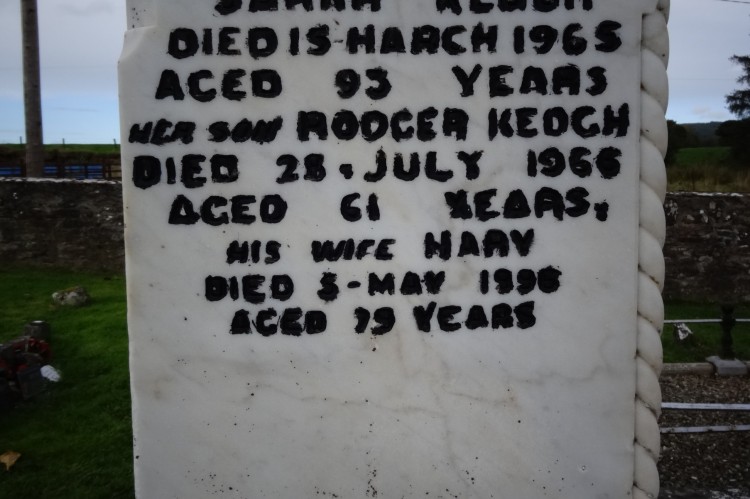 KEOGH
DIED 15-MARCH 1965
AGED 93 YEARS
HER SON RODGER KEOGH
DIED 28. JULY 1966
AGED 61 YEARS.
HIS WIFE MARY
DIED 3-MAY 1996
AGED 79 YEARS